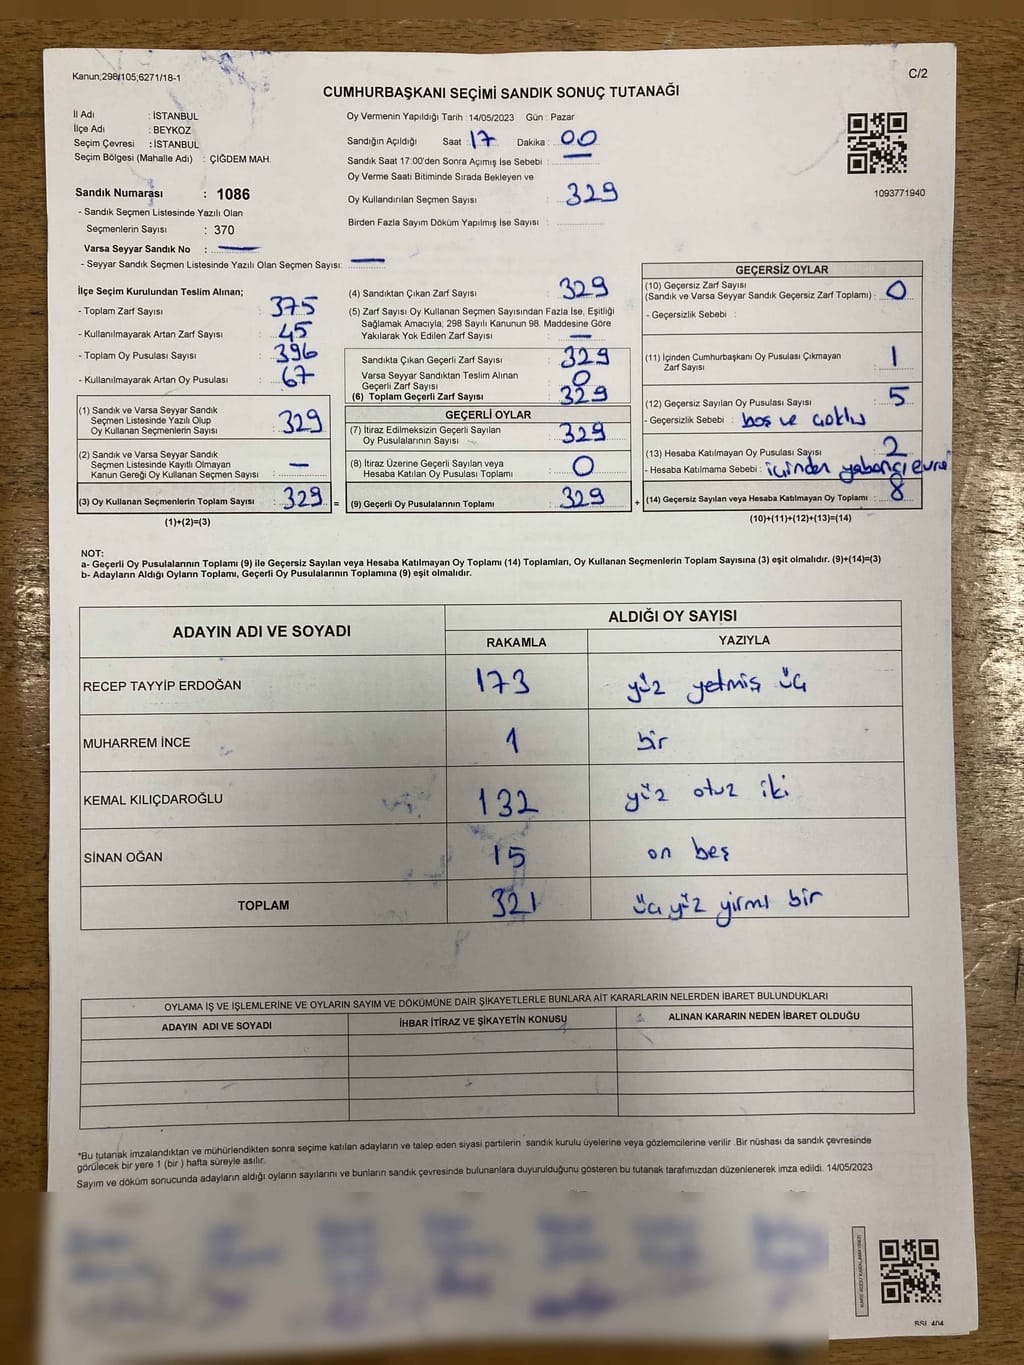 Kanun;298/105;6271/18-1
C/2
CUMHURBAŞKANI SEÇİMİ SANDIK SONUÇ TUTANAĞI
İl Adı : İSTANBUL
İlçe Adı : BEYKOZ
Seçim Çevresi : İSTANBUL
Seçim Bölgesi (Mahalle Adı) : ÇİĞDEM MAH.
Sandık Numarası : 1086
- Sandık Seçmen Listesinde Yazılı Olan
Seçmenlerin Sayısı : 370
Varsa Seyyar Sandık No :
- Seyyar Sandık Seçmen Listesinde Yazılı Olan Seçmen Sayısı:
Oy Vermenin Yapıldığı Tarih : 14/05/2023 Gün : Pazar
Sandığın Açıldığı Saat : 17 Dakika : 00
Sandık Saat 17:00'den Sonra Açımış İse Sebebi :
Oy Verme Saati Bitiminde Sırada Bekleyen ve
Oy Kullandırılan Seçmen Sayısı : 329
Birden Fazla Sayım Döküm Yapılmış İse Sayısı :
1093771940
İlçe Seçim Kurulundan Teslim Alınan;
- Toplam Zarf Sayısı : 375
- Kullanılmayarak Artan Zarf Sayısı : 45
- Toplam Oy Pusulası Sayısı : 396
- Kullanılmayarak Artan Oy Pusulası : 67
(1) Sandık ve Varsa Seyyar Sandık
Seçmen Listesinde Yazılı Olup
Oy Kullanan Seçmenlerin Sayısı : 329
(2) Sandık ve Varsa Seyyar Sandık
Seçmen Listesinde Kayıtlı Olmayan
Kanun Gereği Oy Kullanan Seçmen Sayısı : —
(3) Oy Kullanan Seçmenlerin Toplam Sayısı : 329 =
(1)+(2)=(3)
(4) Sandıktan Çıkan Zarf Sayısı : 329
(5) Zarf Sayısı Oy Kullanan Seçmen Sayısından Fazla İse, Eşitliği
Sağlamak Amacıyla; 298 Sayılı Kanunun 98. Maddesine Göre
Yakılarak Yok Edilen Zarf Sayısı : —
Sandıkta Çıkan Geçerli Zarf Sayısı : 329
Varsa Seyyar Sandıktan Teslim Alınan
Geçerli Zarf Sayısı : 0
(6) Toplam Geçerli Zarf Sayısı : 329
GEÇERLİ OYLAR
(7) İtiraz Edilmeksizin Geçerli Sayılan
Oy Pusulalarının Sayısı : 329
(8) İtiraz Üzerine Geçerli Sayılan veya
Hesaba Katılan Oy Pusulası Toplamı : 0
(9) Geçerli Oy Pusulalarının Toplamı : 329 +
GEÇERSİZ OYLAR
(10) Geçersiz Zarf Sayısı
(Sandık ve Varsa Seyyar Sandık Geçersiz Zarf Toplamı) : 0
- Geçersizlik Sebebi :
(11) İçinden Cumhurbaşkanı Oy Pusulası Çıkmayan
Zarf Sayısı : 1
(12) Geçersiz Sayılan Oy Pusulası Sayısı : 5
- Geçersizlik Sebebi : boş ve çoklu
(13) Hesaba Katılmayan Oy Pusulası Sayısı : 2
- Hesaba Katılmama Sebebi : içinden yabancı evra
(14) Geçersiz Sayılan veya Hesaba Katılmayan Oy Toplamı : 8
(10)+(11)+(12)+(13)=(14)
NOT:
a- Geçerli Oy Pusulalarının Toplamı (9) ile Geçersiz Sayılan veya Hesaba Katılmayan Oy Toplamı (14) Toplamları, Oy Kullanan Seçmenlerin Toplam Sayısına (3) eşit olmalıdır. (9)+(14)=(3)
b- Adayların Aldığı Oyların Toplamı, Geçerli Oy Pusulalarının Toplamına (9) eşit olmalıdır.
ADAYIN ADI VE SOYADI
ALDIĞI OY SAYISI
RAKAMLA YAZIYLA
RECEP TAYYİP ERDOĞAN 173 yüz yetmiş üç
MUHARREM İNCE 1 bir
KEMAL KILIÇDAROĞLU 132 yüz otuz iki
SİNAN OĞAN 15 on beş
TOPLAM 321 üç yüz yirmi bir
OYLAMA İŞ VE İŞLEMLERİNE VE OYLARIN SAYIM VE DÖKÜMÜNE DAİR ŞİKAYETLERLE BUNLARA AİT KARARLARIN NELERDEN İBARET BULUNDUKLARI
ADAYIN ADI VE SOYADI İHBAR İTİRAZ VE ŞİKAYETİN KONUSU ALINAN KARARIN NEDEN İBARET OLDUĞU
*Bu tutanak imzalandıktan ve mühürlendikten sonra seçime katılan adayların ve talep eden siyasi partilerin sandık kurulu üyelerine veya gözlemcilerine verilir .Bir nüshası da sandık çevresinde
görülecek bir yere 1 (bir ) hafta süreyle asılır.
Sayım ve döküm sonucunda adayların aldığı oyların sayılarını ve bunların sandık çevresinde bulunanlara duyurulduğunu gösteren bu tutanak tarafımızdan düzenlenerek imza edildi. 14/05/2023